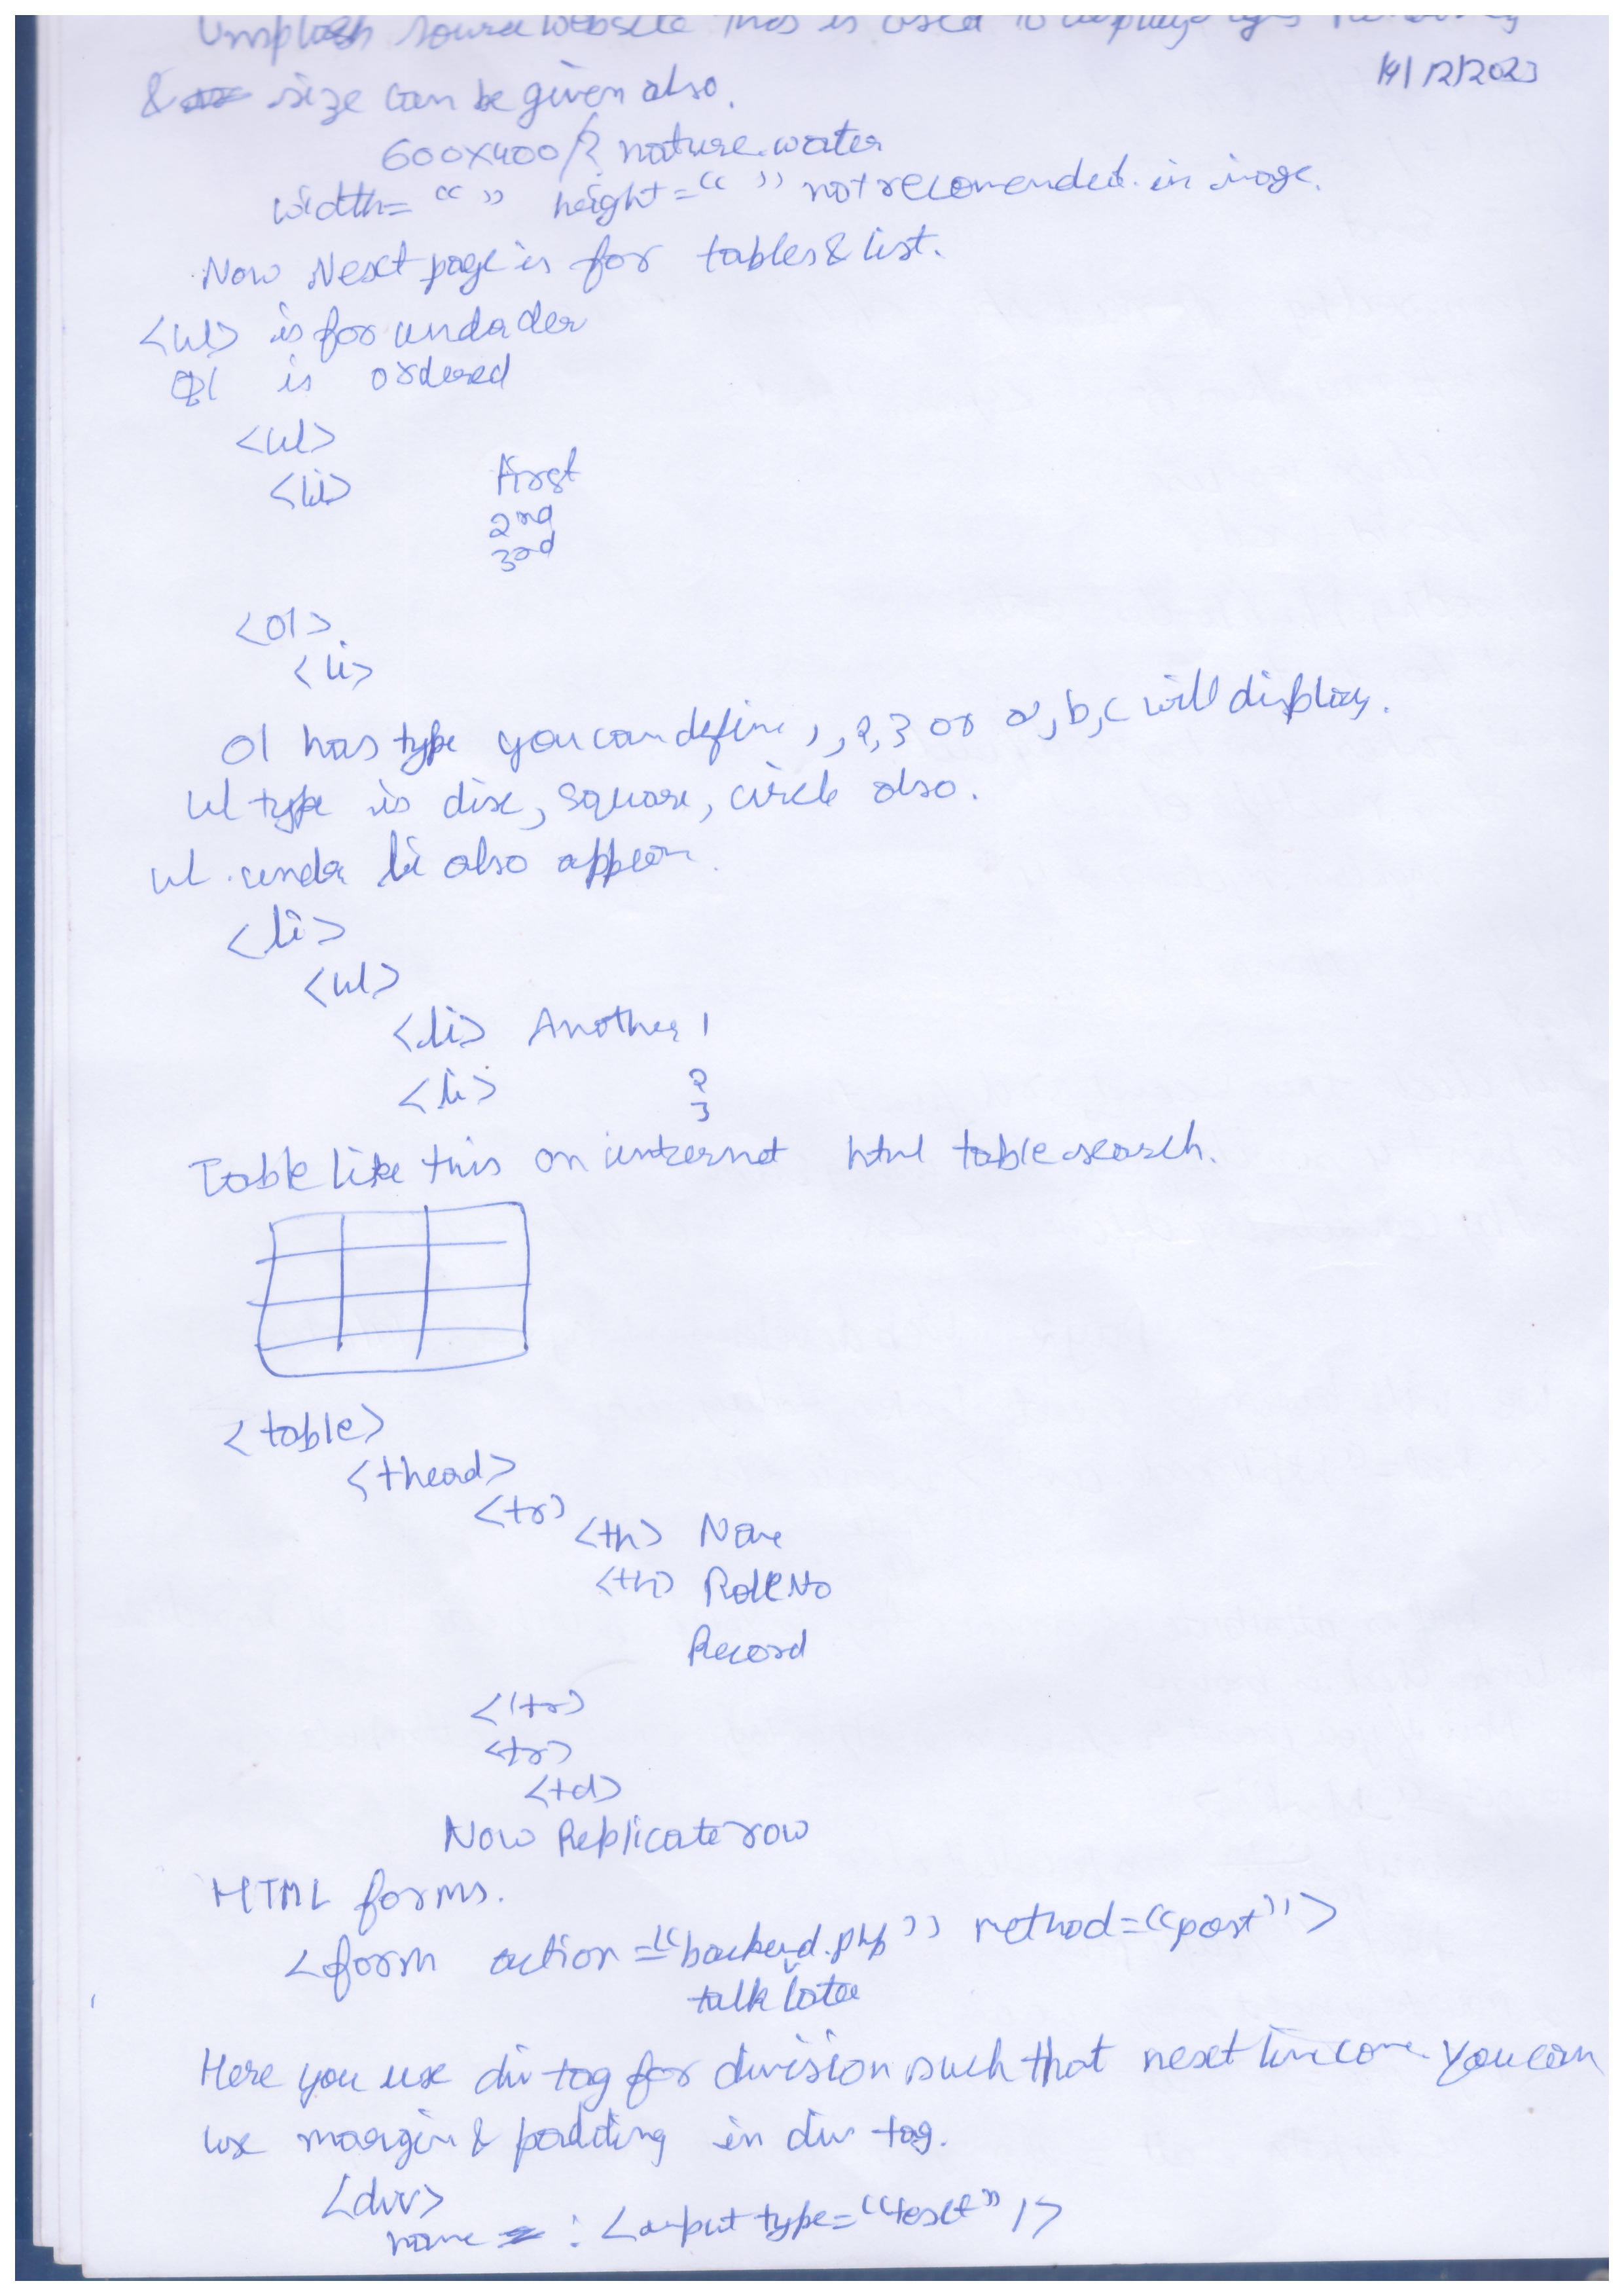 Unsplash source website this is used to display
14/12/2023
& size can be given also.
600x400/? nature.water
width= “ ” height= “ ” not recomended in image.
Now Next page is for tables & list.
<ul> is for undader
Ol is ordered
<ul>
<li> First
2nd
3rd
<ol>
<li>
Ol has type you can define 1, 2, 3 or a, b, c will display.
Ul type is disc, square, circle also.
ul under li also appear.
<li>
<ul>
<li> Another 1
<li> 2
3
Table like this on internet html table search.
<table>
<thead>
<tr>
<th> Name
<th> Roll No
Record
</tr>
<tr>
<td>
Now Replicate row
HTML forms.
<form action="backend.php" method="post">
talk later
Here you use div tag for division such that next line come. You can
use margin & padding in div tag.
<div>
name : <input type="text" />